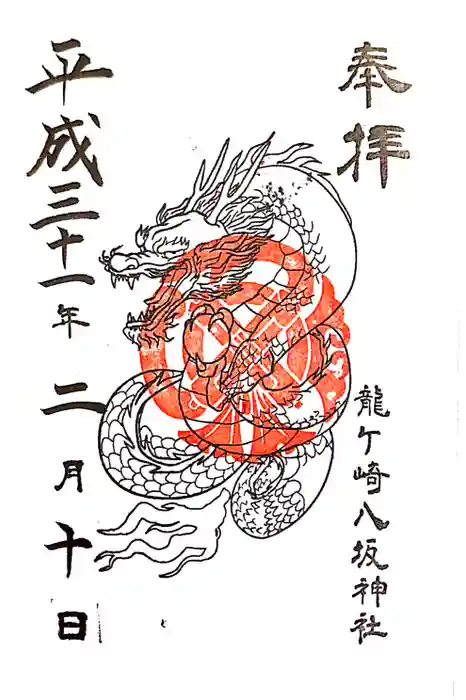 奉拝
龍ケ崎八坂神社
平成三十一年二月十日